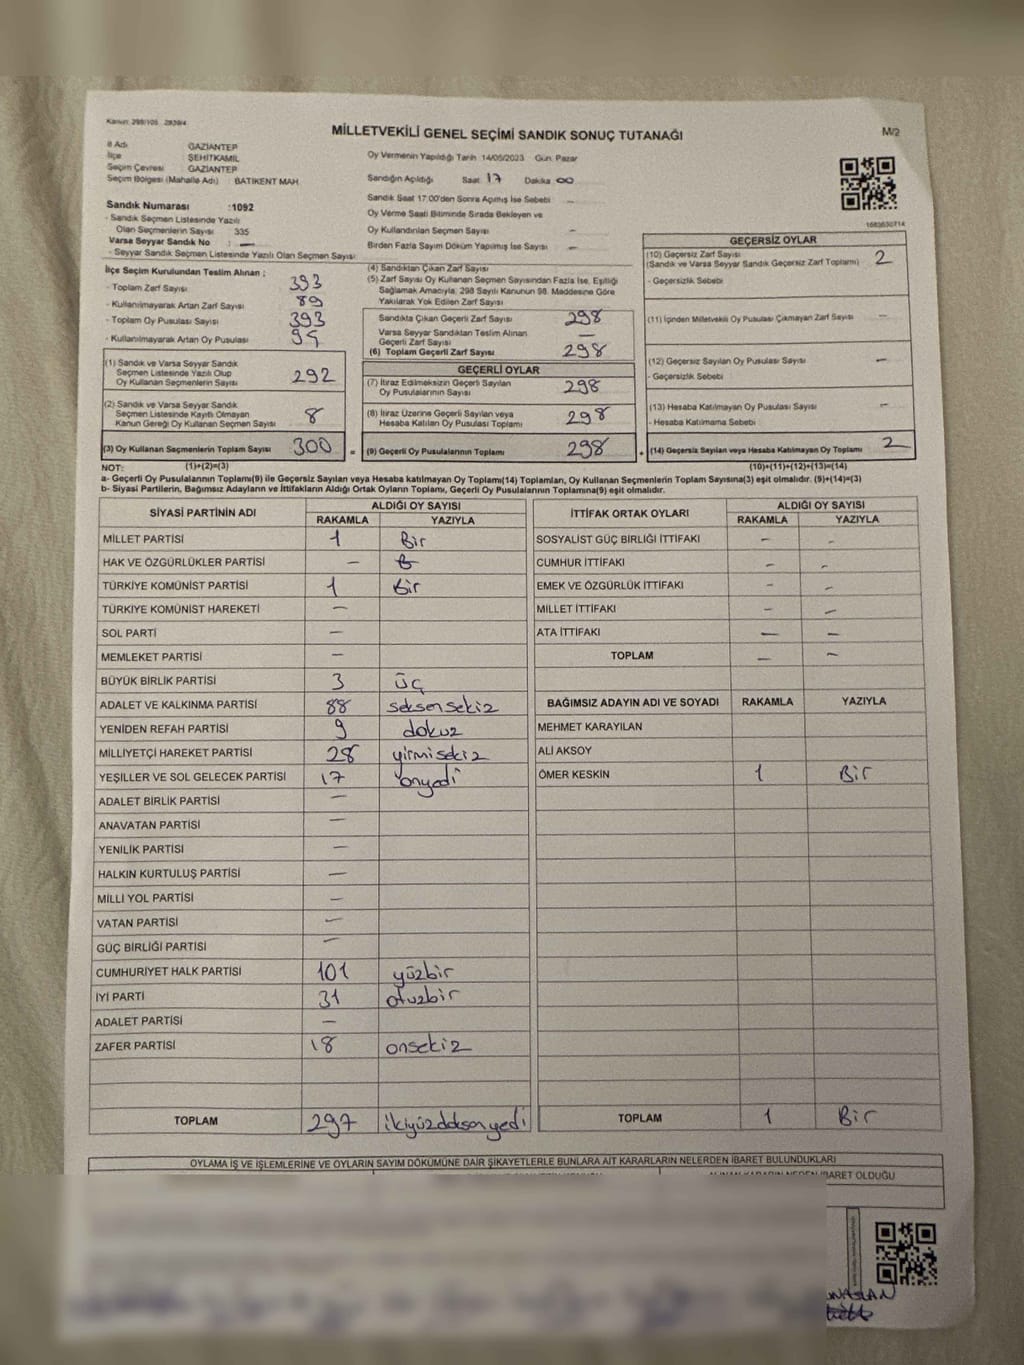 Kanun: 298/105 2839/4
MİLLETVEKİLİ GENEL SEÇİMİ SANDIK SONUÇ TUTANAĞI
M/2
İl Adı GAZİANTEP
İlçe ŞEHİTKAMİL
Seçim Çevresi GAZİANTEP
Seçim Bölgesi (Mahalle Adı) : BATIKENT MAH.
Oy Vermenin Yapıldığı Tarih 14/05/2023 Gün: Pazar
Sandığın Açıldığı Saat 17 Dakika 00
Sandık Saat 17.00'den Sonra Açılmış İse Sebebi –
Oy Verme Saati Bitiminde Sırada Bekleyen ve
Oy Kullandırılan Seçmen Sayısı –
Birden Fazla Sayım Döküm Yapılmış İse Sayısı –
1683630714
Sandık Numarası :1092
- Sandık Seçmen Listesinde Yazılı
Olan Seçmenlerin Sayısı 335
Varsa Seyyar Sandık No : —
- Seyyar Sandık Seçmen Listesinde Yazılı Olan Seçmen Sayısı:
İlçe Seçim Kurulundan Teslim Alınan ;
- Toplam Zarf Sayısı 393
- Kullanılmayarak Artan Zarf Sayısı 89
- Toplam Oy Pusulası Sayısı 393
- Kullanılmayarak Artan Oy Pusulası
(1) Sandık ve Varsa Seyyar Sandık
Seçmen Listesinde Yazılı Olup
Oy Kullanan Seçmenlerin Sayısı 292
(2) Sandık ve Varsa Seyyar Sandık
Seçmen Listesinde Kayıtlı Olmayan
Kanun Gereği Oy Kullanan Seçmen Sayısı 8
(3) Oy Kullanan Seçmenlerin Toplam Sayısı 300 =
(4) Sandıktan Çıkan Zarf Sayısı
(5) Zarf Sayısı Oy Kullanan Seçmen Sayısından Fazla İse, Eşitliği
Sağlamak Amacıyla, 298 Sayılı Kanunun 98. Maddesine Göre
Yakılarak Yok Edilen Zarf Sayısı
Sandıkta Çıkan Geçerli Zarf Sayısı 298
Varsa Seyyar Sandıktan Teslim Alınan
Geçerli Zarf Sayısı —
(6) Toplam Geçerli Zarf Sayısı 298
GEÇERLİ OYLAR
(7) İtiraz Edilmeksizin Geçerli Sayılan
Oy Pusulalarının Sayısı 298
(8) İtiraz Üzerine Geçerli Sayılan veya
Hesaba Katılan Oy Pusulası Toplamı 298
(9) Geçerli Oy Pusulalarının Toplamı 298 +
GEÇERSİZ OYLAR
(10) Geçersiz Zarf Sayısı
(Sandık ve Varsa Seyyar Sandık Geçersiz Zarf Toplamı) 2
- Geçersizlik Sebebi
(11) İçinden Milletvekili Oy Pusulası Çıkmayan Zarf Sayısı –
(12) Geçersiz Sayılan Oy Pusulası Sayısı –
- Geçersizlik Sebebi
(13) Hesaba Katılmayan Oy Pusulası Sayısı –
- Hesaba Katılmama Sebebi
(14) Geçersiz Sayılan veya Hesaba Katılmayan Oy Toplamı 2
NOT: (1)+(2)=(3) (10)+(11)+(12)+(13)=(14)
a- Geçerli Oy Pusulalarının Toplamı(9) ile Geçersiz Sayılan veya Hesaba katılmayan Oy Toplamı(14) Toplamları, Oy Kullanan Seçmenlerin Toplam Sayısına(3) eşit olmalıdır. (9)+(14)=(3)
b- Siyasi Partilerin, Bağımsız Adayların ve İttifakların Aldığı Ortak Oyların Toplamı, Geçerli Oy Pusulalarının Toplamına(9) eşit olmalıdır.
SİYASİ PARTİNİN ADI ALDIĞI OY SAYISI
RAKAMLA YAZIYLA
MİLLET PARTİSİ 1 Bir
HAK VE ÖZGÜRLÜKLER PARTİSİ –
TÜRKİYE KOMÜNİST PARTİSİ 1 Bir
TÜRKİYE KOMÜNİST HAREKETİ –
SOL PARTİ –
MEMLEKET PARTİSİ –
BÜYÜK BİRLİK PARTİSİ 3 üç
ADALET VE KALKINMA PARTİSİ 88 seksensekiz
YENİDEN REFAH PARTİSİ 9 dokuz
MİLLİYETÇİ HAREKET PARTİSİ 28 yirmisekiz
YEŞİLLER VE SOL GELECEK PARTİSİ 17 onyedi
ADALET BİRLİK PARTİSİ –
ANAVATAN PARTİSİ –
YENİLİK PARTİSİ –
HALKIN KURTULUŞ PARTİSİ –
MİLLİ YOL PARTİSİ –
VATAN PARTİSİ –
GÜÇ BİRLİĞİ PARTİSİ –
CUMHURİYET HALK PARTİSİ 101 yüzbir
İYİ PARTİ 31 otuzbir
ADALET PARTİSİ –
ZAFER PARTİSİ 18 onsekiz
TOPLAM 297 ikiyüzdoksanyedi
İTTİFAK ORTAK OYLARI ALDIĞI OY SAYISI
RAKAMLA YAZIYLA
SOSYALİST GÜÇ BİRLİĞİ İTTİFAKI – –
CUMHUR İTTİFAKI – –
EMEK VE ÖZGÜRLÜK İTTİFAKI – –
MİLLET İTTİFAKI – –
ATA İTTİFAKI – –
TOPLAM – –
BAĞIMSIZ ADAYIN ADI VE SOYADI RAKAMLA YAZIYLA
MEHMET KARAYILAN
ALİ AKSOY
ÖMER KESKİN 1 Bir
TOPLAM 1 Bir
OYLAMA İŞ VE İŞLEMLERİNE VE OYLARIN SAYIM DÖKÜMÜNE DAİR ŞİKAYETLERLE BUNLARA AİT KARARLARIN NELERDEN İBARET BULUNDUKLARI
ALINAN KARARIN NEDEN İBARET OLDUĞU